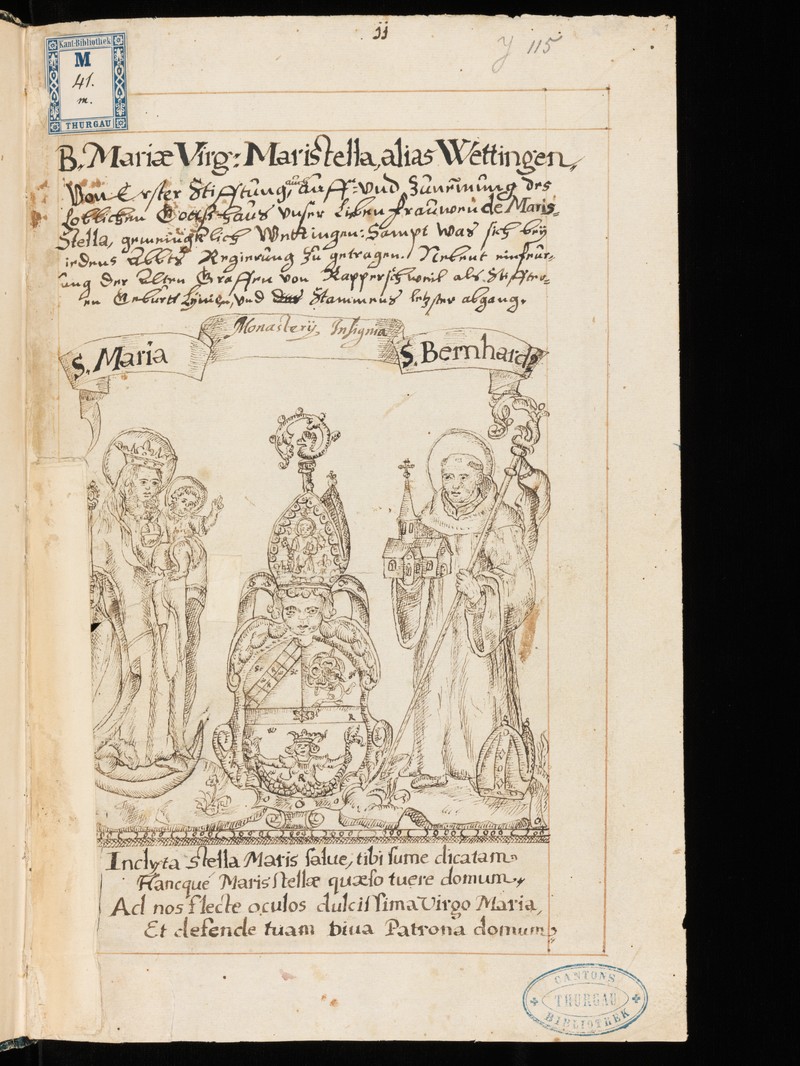 jj
J 115
Kant-Bibliothek
M
41.
m.
THURGAU
B. Mariæ Virg: Maris stella, alias Wettingen,
Von Erster Stifftung, auch Auff- und Zunemung des
Loblichen Gottß-haus unser Lieben frauwen de Maris
Stella, gemeingklich Wettingen: Sampt was sich bey
iedens Abbts Regierung zu getragen. Nebent einfeur-
ung der Alten Graffen von Rapperschweil als Stiffter-
en Geburts Lynien, und Stammens letster abgang.
Monasterij Insignia
S. Maria
S. Bernhard
Inclyta stella Maris salue, tibi sume dicatam
Hancque Maris stellæ quæso tuere domum.
Ad nos flecte oculos dulcissima Virgo Maria,
Et defende tuam diua Patrona domum
CANTONS
THURGAU
BIBLIOTHEK